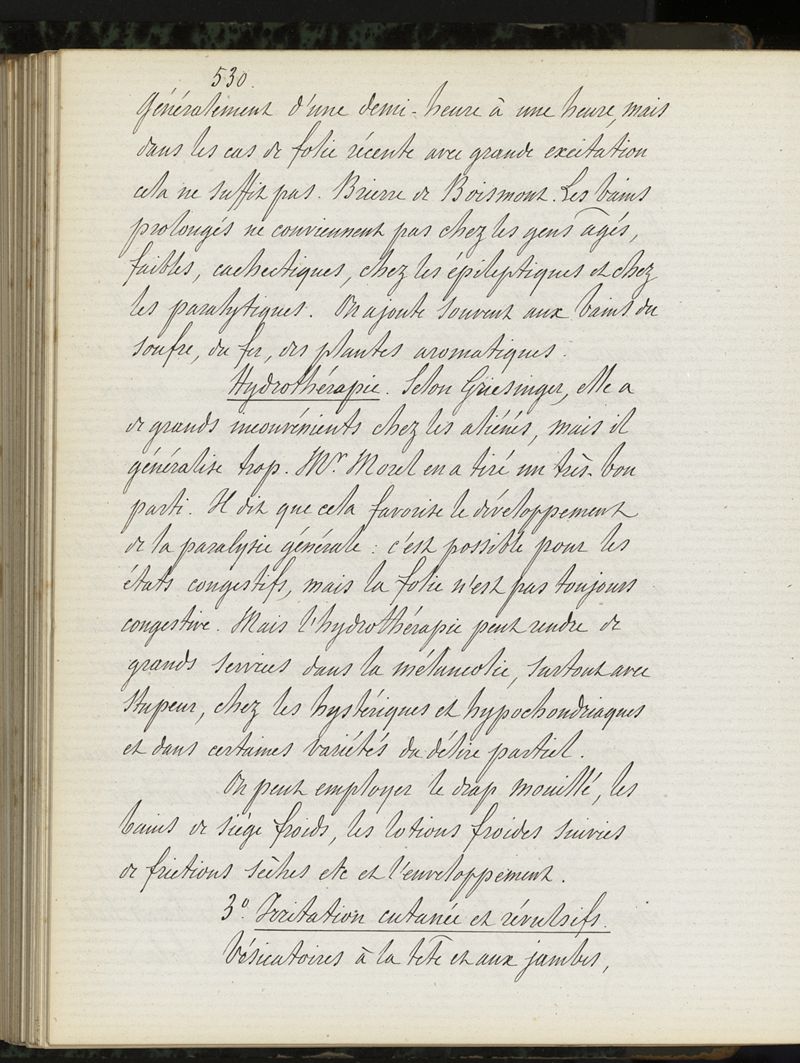 530.
Généralement d'une demi-heure à une heure, mais
dans les cas de folie récente avec grande excitation
cela ne suffit pas. Brierre de Boismont. Les bains
prolongés ne conviennent pas chez les gens âgés,
faibles, cachectiques, chez les épileptiques et chez
les paralytiques. On ajoute souvent aux bains du
soufre, du fer, des plantes aromatiques.
Hydrothérapie. Selon Griesinger, elle a
de grands inconvénients chez les aliénés, mais il
généralise trop. Mr. Morel en a tiré un très-bon
parti. Il dit que cela favorise le développement
de la paralysie générale : c'est possible pour les
états congestifs, mais la folie n'est pas toujours
congestive. Mais l'hydrothérapie peut rendre de
grands services dans la mélancolie, surtout avec
stupeur, chez les hystériques et hypochondriaques
et dans certaines variétés du délire partiel.
On peut employer le drap mouillé, les
bains de siége froids, les lotions froides suivies
de frictions sèches etc et l'enveloppement.
3º. Irritation cutanée et révulsifs.
Vésicatoires à la tête et aux jambes,